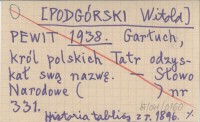 [PODGÓRSKI Witold]
PEWIT 1938. Garłuch,
król polskich Tatr odzys-
kał swą nazwę. — Słowo
Narodowe ( ) nr
331.
Historia tablicy z r. 1896. %